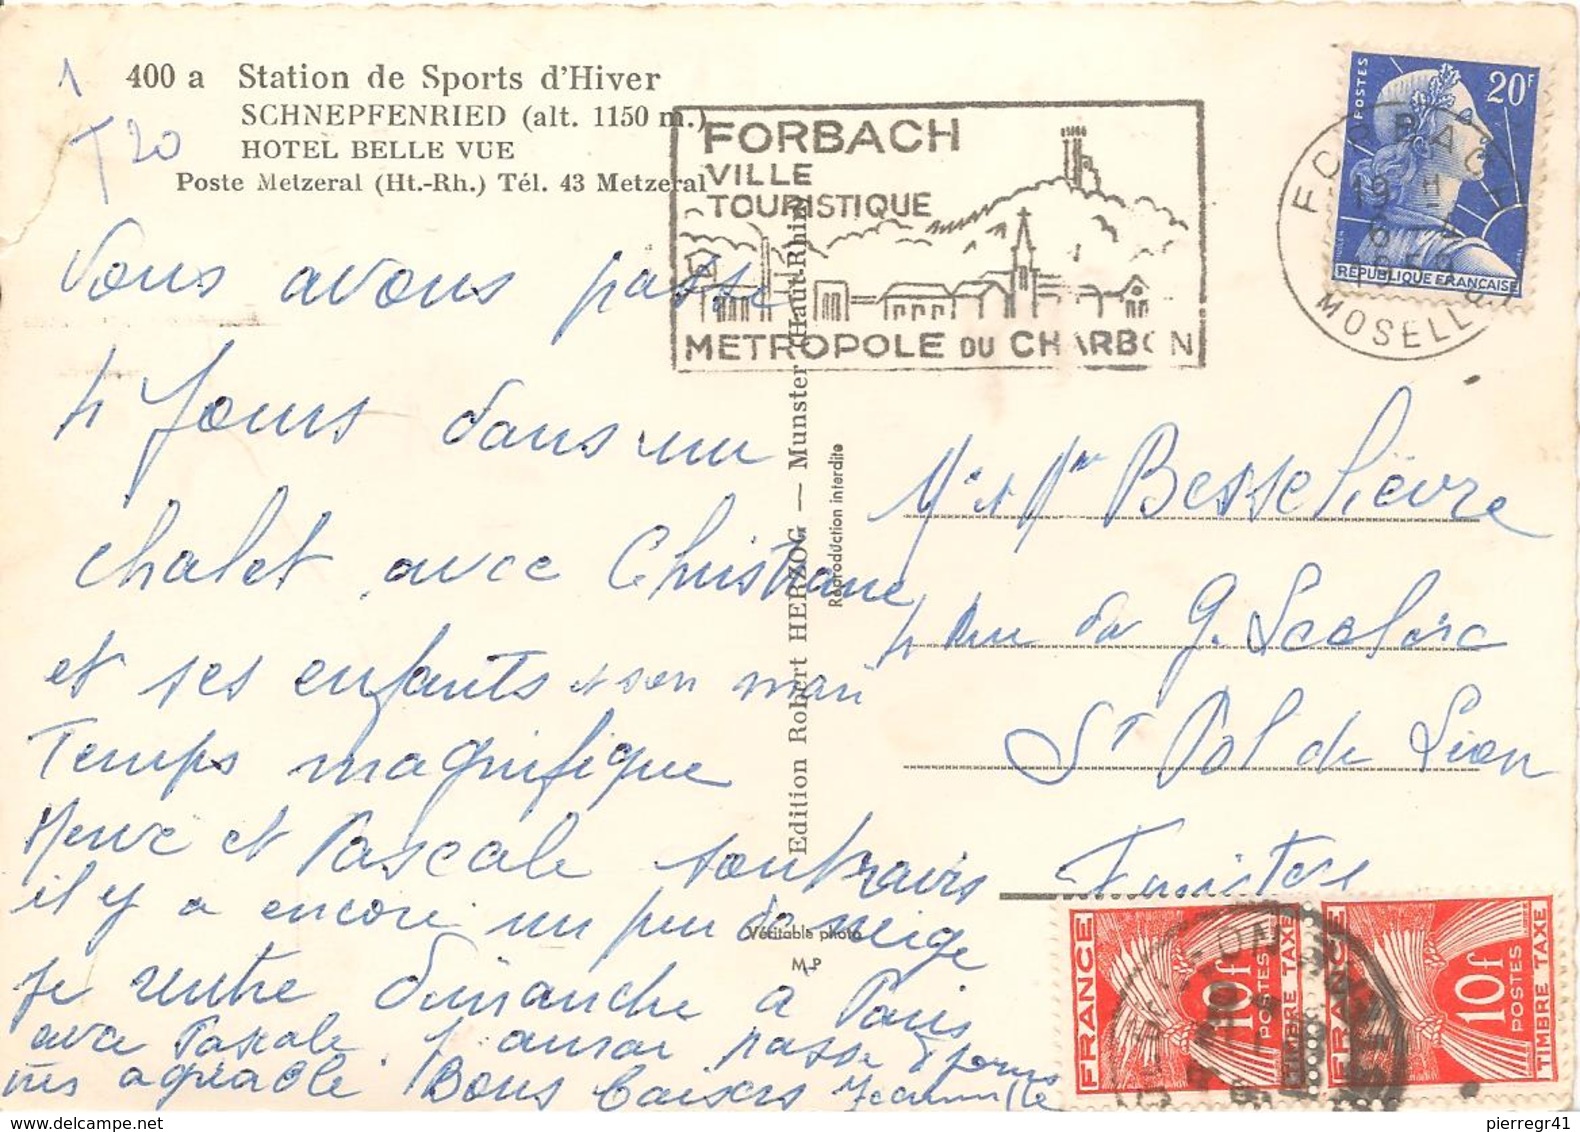 1
T 20
400 a Station de Sports d'Hiver
SCHNEPFENRIED (alt. 1150 m.)
HOTEL BELLE VUE
Poste Metzeral (Ht.-Rh.) Tél. 43 Metzeral
FORBACH
VILLE
TOURISTIQUE
METROPOLE DU CHARBON
FORBACH
19 H
MOSELLE
POSTES
20F
REPUBLIQUE FRANÇAISE
Vous avons passé
4 Jours dans un
chalet avec Christiane
et ses enfants et son mari
Temps magnifique
Herve et Pascale sont ravis
il y a encore un peu de neige
Je rentre dimanche à Paris
avec Pascale. J aurai passé 8 jours
très agréable. Bons baisers Jeannille
Edition Robert HERZOG — Munster (Haut-Rhin)
Reproduction interdite
Véritable photo
M-P
Mr et Mme Besselièvre
4 Rue du G. Leclerc
St Pol de Léon
Finistère
FRANCE
10f
POSTES
TIMBRE TAXE
FRANCE
10f
POSTES
TIMBRE TAXE
pierregr41